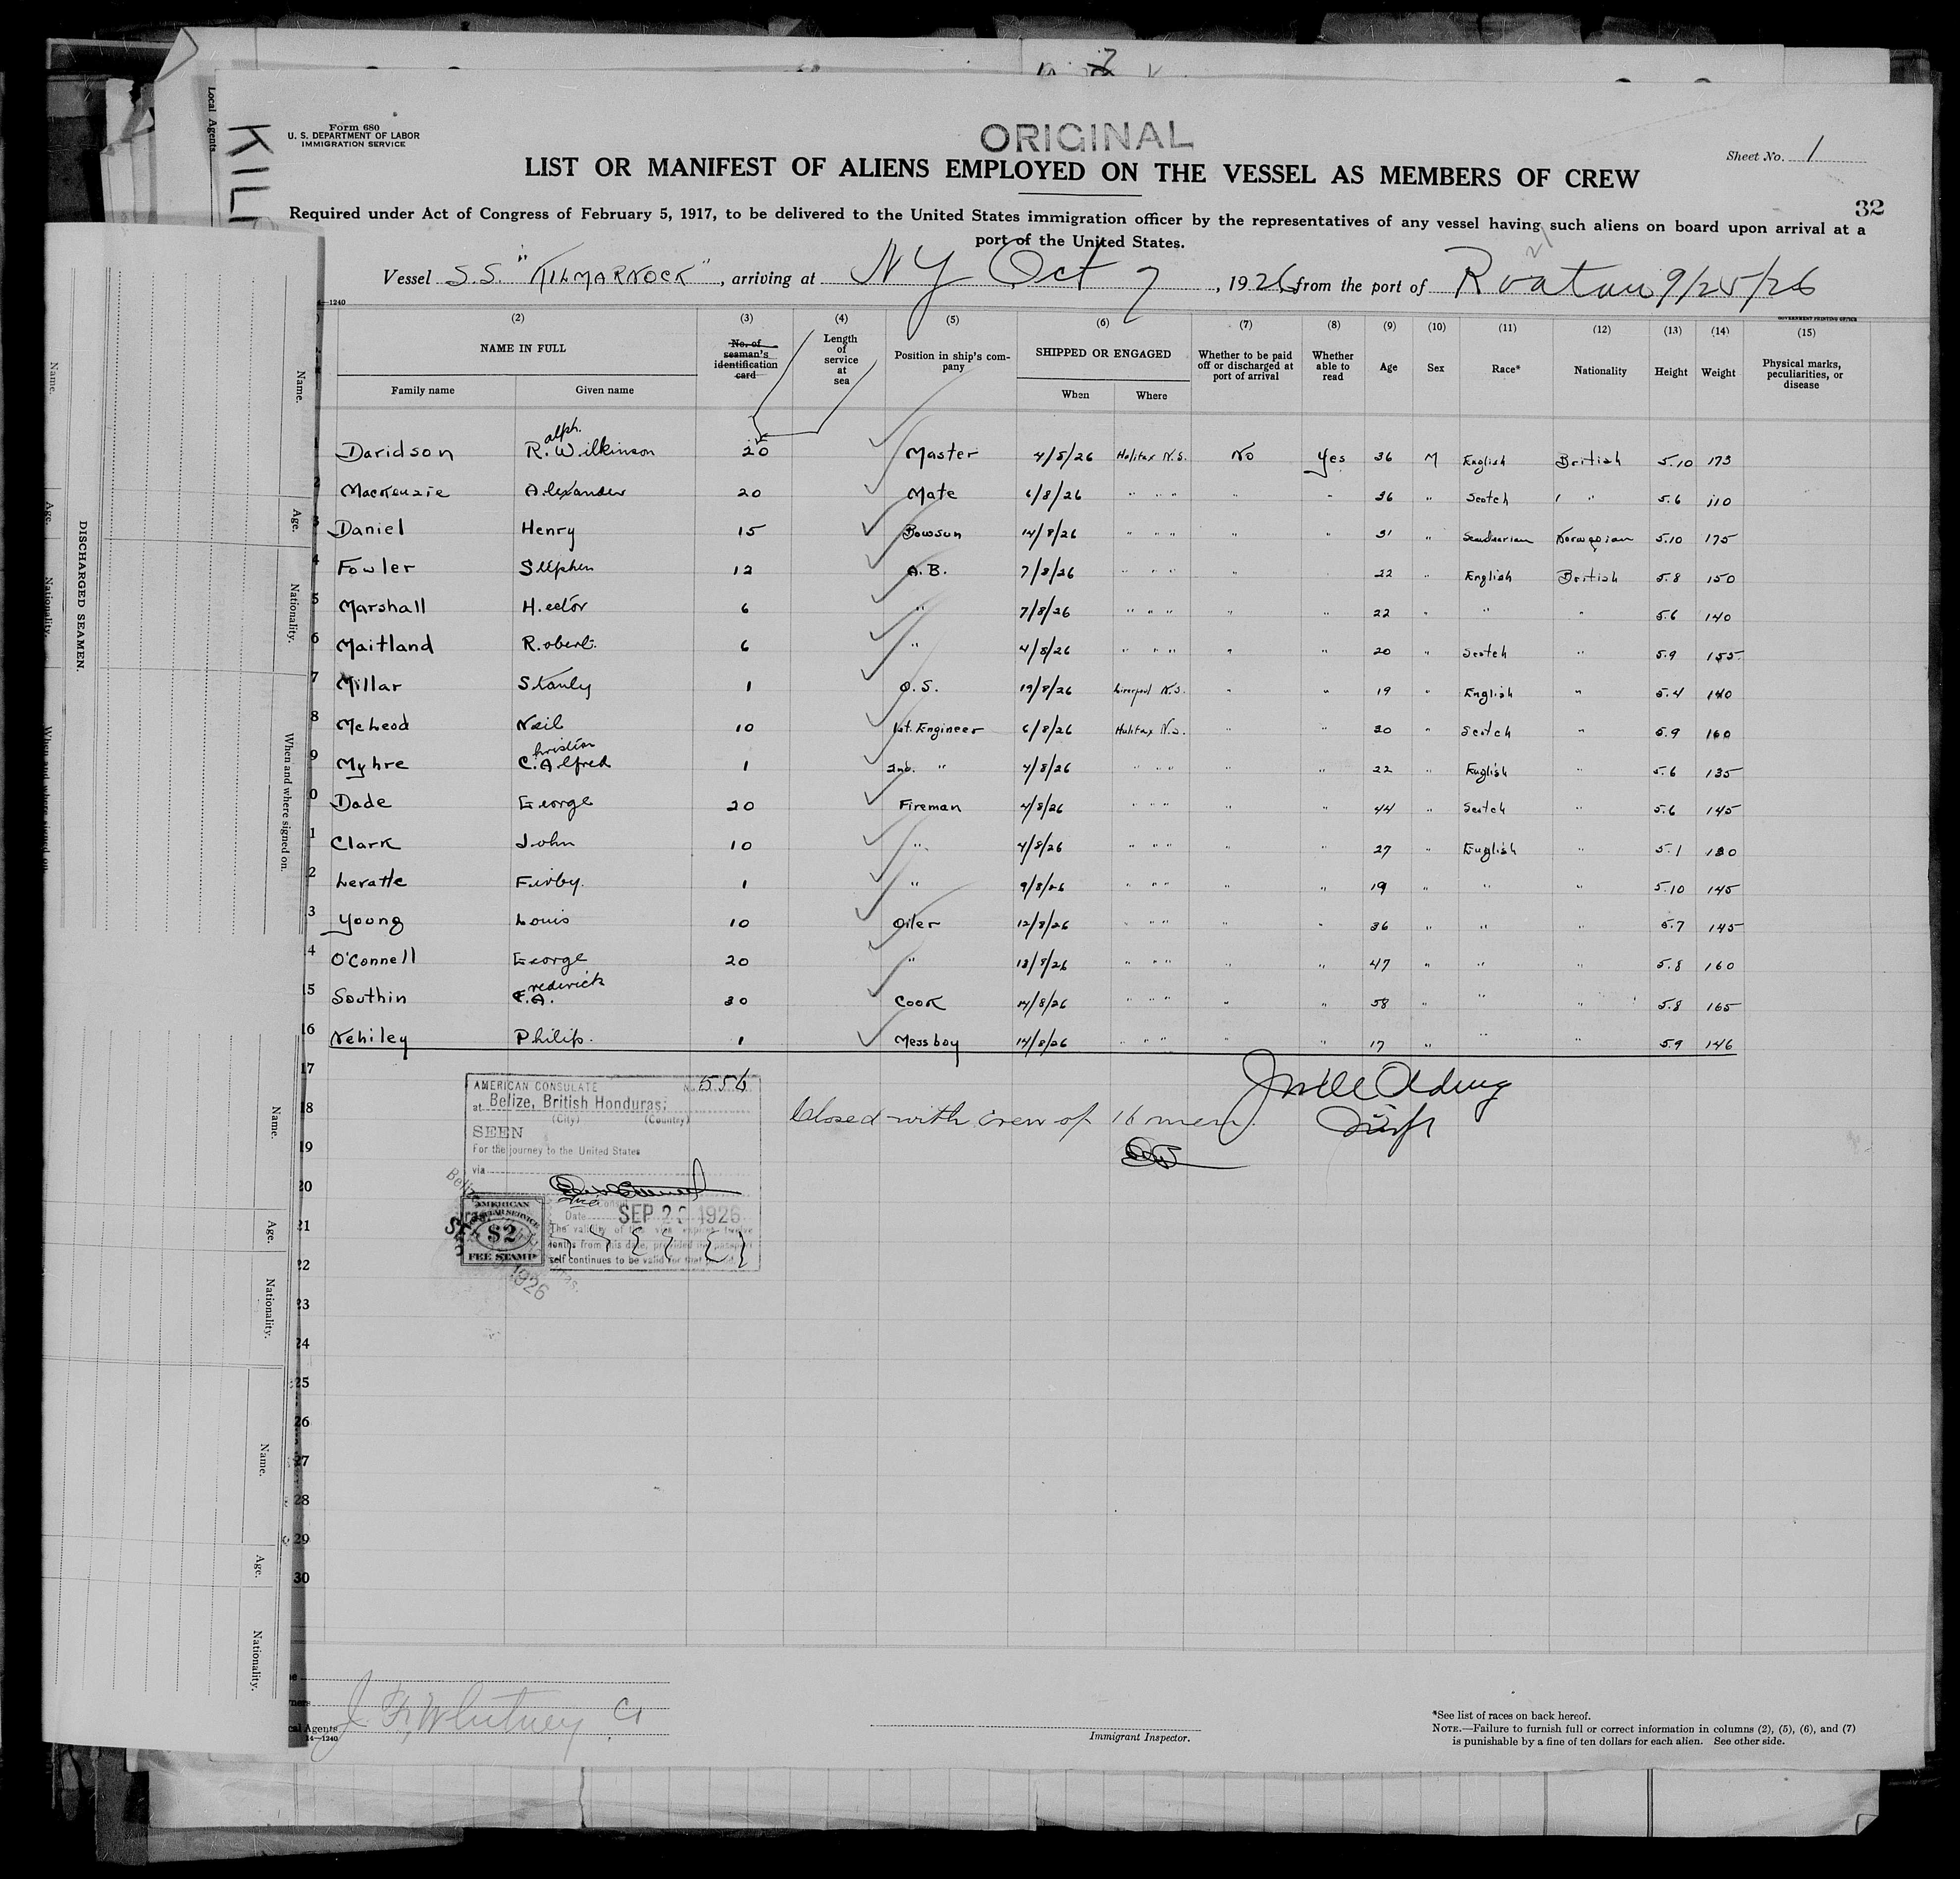 ORIGINAL
Form 680
U. S. DEPARTMENT OF LABOR
IMMIGRATION SERVICE
Sheet No. 1
LIST OR MANIFEST OF ALIENS EMPLOYED ON THE VESSEL AS MEMBERS OF CREW
32
Required under Act of Congress of February 5, 1917, to be delivered to the United States immigration officer by the representatives of any vessel having such aliens on board upon arrival at a
port of the United States.
Vessel S.S. "KILMARNOCK", arriving at NY Oct 7, 1926 from the port of Roatan 9/25/26
(2) (3) (4) (5) (6) (7) (8) (9) (10) (11) (12) (13) (14) (15)
NAME IN FULL No. of seaman's identification card Length of service at sea Position in ship's company SHIPPED OR ENGAGED Whether to be paid off or discharged at port of arrival Whether able to read Age Sex Race* Nationality Height Weight Physical marks, peculiarities, or disease
Family name Given name When Where
Davidson R.alph. Wilkinson 20 Master 4/8/26 Halifax N.S. No Yes 36 M English British 5.10 173
MacKenzie Alexander 20 Mate 6/8/26 " " " " " 36 " Scotch " " 5.6 110
3 Daniel Henry 15 Bowsun 14/8/26 " " " " " 31 " Scandinavian Norwegian 5.10 175
4 Fowler Stephen 12 A.B. 7/8/26 " " " " 22 " English British 5.8 150
5 Marshall Hector 6 " 7/8/26 " " " " " 22 " " " 5.6 140
6 Maitland Robert 6 " 4/8/26 " " " " " 20 " Scotch " 5.9 155
7 Millar Stanly 1 O.S. 19/8/26 Liverpool N.S. " " 19 " English " 5.4 140
8 McLeod Neil 10 1st. Engineer 6/8/26 Halifax N.S. " " 30 " Scotch " 5.9 160
9 Myhre C.hristian Alfred 1 2nd. " 4/8/26 " " " " " 22 " English " 5.6 135
0 Dade George 20 Fireman 4/8/26 " " " " " 44 " Scotch " 5.6 145
1 Clark John 10 " 4/8/26 " " " " " 27 " English " 5.1 130
2 Firby. 1 " 9/8/26 " " " " " 19 " " " 5.10 145
3 Young Louis 10 Oiler 12/8/26 " " " " " 36 " " " 5.7 145
4 O'Connell George 20 " 13/8/26 " " " " " 47 " " " 5.8 160
15 Southin F.rederick A. 30 Cook 14/8/26 " " " " " 58 " " " 5.8 165
16 Nehiley Philip. 1 Mess boy 14/8/26 " " " " " 17 " " " 5.9 146
17
18
19
20
21
22
23
24
25
26
27
28
29
30
AMERICAN CONSULATE No. 556
at Belize, British Honduras.
(City) (Country)
SEEN
For the journey to the United States
via
Date SEP 2 1926
The validity of this visa expires twelve
months from this date, provided the passport
self continues to be valid for that period.
AMERICAN
$2
FEE STAMP
1926
Closed with crew of 16 men.
J. F. Whitney Co
cal Agents
14—1240
Immigrant Inspector.
*See list of races on back hereof.
NOTE.—Failure to furnish full or correct information in columns (2), (5), (6), and (7)
is punishable by a fine of ten dollars for each alien. See other side.
GOVERNMENT PRINTING OFFICE
Local Agents
DISCHARGED SEAMEN.
Name.
Age.
Nationality.
When and where signed on.
Name.
Age.
Nationality.
Name.
Age.
Nationality.